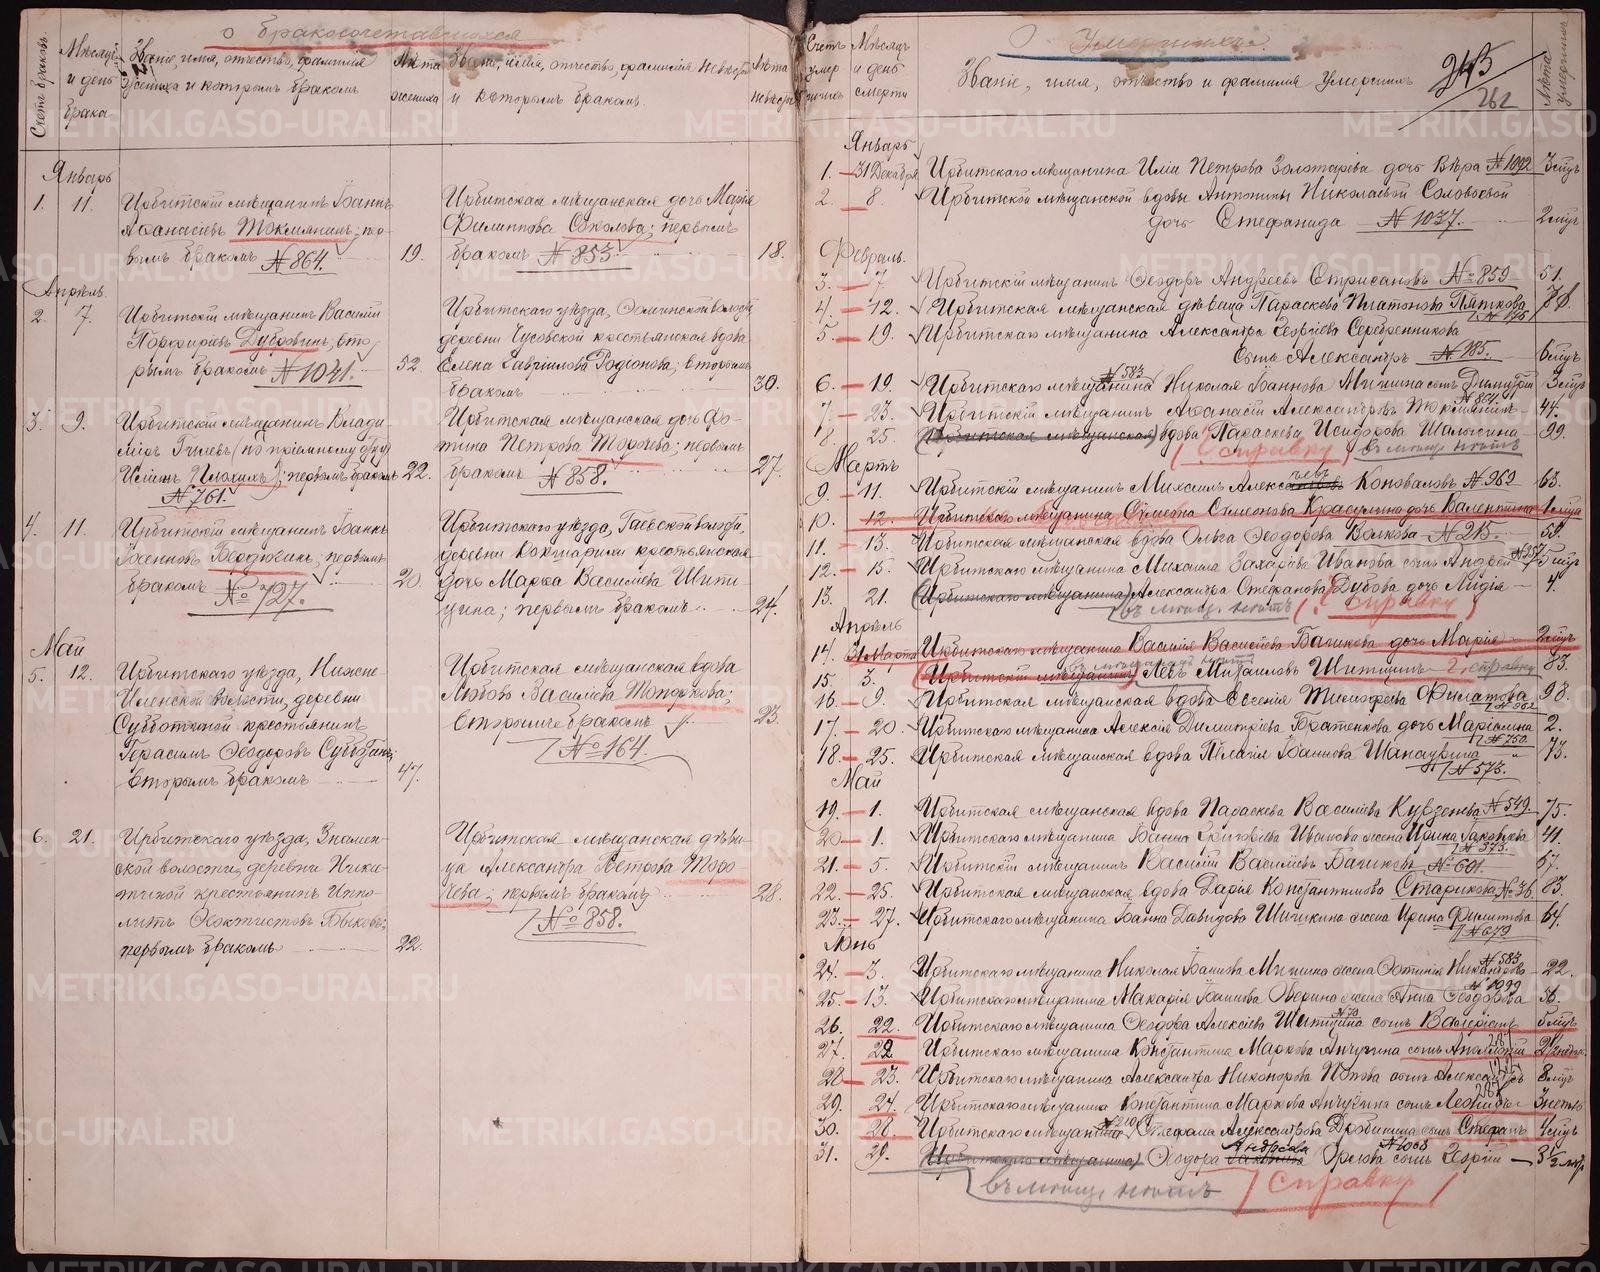 о бракосочетавшихся
Счетъ браковъ
Мѣсяцъ и день брака
Званіе, имя, отчество, фамилія
жениха и которымъ бракомъ
Лѣта жениха
Званіе, имя, отчество, фамилія невѣсты
и которымъ бракомъ.
Лѣта невѣсты
Январь
1. 11. Ирбитскій мѣщанинъ Іоаннъ
Аѳанасіевъ Токмянинъ; пер-
вымъ бракомъ № 864. 19.
Ирбитская мѣщанская дочь Марія
Филиппова Соколова; первымъ
бракомъ № 853. 18.
Апрѣль.
2. 7. Ирбитскій мѣщанинъ Василій
Порфиріевъ Дубровинъ; вто-
рымъ бракомъ № 1041. 52.
Ирбитскаго уѣзда, волости,
деревни крестьянская вдова
Елена Гавріилова Родіонова; вторымъ
бракомъ 30.
3. 9. Ирбитскій мѣщанинъ Влади-
міръ (по пріемному отцу)
; первымъ бракомъ 22.
№ 761.
Ирбитская мѣщанская дочь Фо-
тина Петрова Торочева; первымъ
бракомъ № 858. 27.
4. 11. Ирбитскій мѣщанинъ Іоаннъ
; первымъ
бракомъ № 727. 20.
Ирбитскаго уѣзда, Гаевской волости,
деревни крестьянская
дочь Марѳа Васильева Шипи-
цина; первымъ бракомъ 24.
Май
5. 12. Ирбитскаго уѣзда, Нижне-
Иленской волости, деревни
Субботиной крестьянинъ
Герасимъ Ѳеодоровъ Субботинъ;
вторымъ бракомъ 47.
Ирбитская мѣщанская вдова
Любовь Васильева Топоркова;
вторымъ бракомъ 23.
№ 164.
6. 21. Ирбитскаго уѣзда, Знамен-
ской волости, деревни Ники-
тиной крестьянинъ Иппо-
литъ Ѳеоктистовъ Быковъ;
первымъ бракомъ 22.
Ирбитская мѣщанская дѣви-
ца Александра Петрова Торо-
чева; первымъ бракомъ 28.
№ 858.
О Умершихъ.
Счетъ умершихъ
Мѣсяцъ и день смерти
Званіе, имя, отчество и фамилія Умершихъ
Лѣта умершихъ
262
Январь
1. 31 Декабря Ирбитскаго мѣщанина Иліи Петрова Золотарева дочь Вѣра № 1092 3 мѣс
2. 8. Ирбитской мѣщанской вдовы Антонины Николаевой Соловьевой
дочь Стефанида № 1037. 2 мѣс
Февраль.
3. 7. Ирбитскій мѣщанинъ Ѳеодоръ Андреевъ Стрижевъ № 859 51.
4. 12. Ирбитская мѣщанская дѣвица Параскева Платонова Пяткова 78.
5. 19. Ирбитскаго мѣщанина Александра Георгіева Серебренникова
сынъ Александръ № 985. 6 мѣс
6. 19. Ирбитскаго мѣщанина Николая Іоаннова Мишина сынъ Димитрій 3 мѣс
№ 583
7. 23. Ирбитскій мѣщанинъ Аѳанасій Александровъ Токмянинъ 44.
№ 864
8. 25. (Ирбитская мѣщанская) вдова Параскева Исидорова 99.
справку въ мѣщ. нѣтъ
Мартъ
9. 11. Ирбитскій мѣщанинъ Михаилъ Алексѣевъ Коноваловъ № 969 63.
10. 12. Ирбитскаго мѣщанина Симеона Красулина дочь Валентина 1 мѣсяца
11. 13. Ирбитская мѣщанская вдова Ольга Ѳеодорова Волкова № 215. 59.
12. 15. Ирбитскаго мѣщанина Михаила Захарова Иванова сынъ Андрей 5 мѣс
13. 21. (Ирбитскаго мѣщанина) Александра Стефанова Дубова дочь Лидія 4.
въ мѣщ. нѣтъ справку
Апрѣль
14. 31 Марта Ирбитскаго мѣщанина Василія Васильева Бачикова дочь Марія 2 мѣс
15. 3. (Ирбитскій мѣщанинъ) Левъ Михаиловъ Шипицинъ справку 83.
16. 9. Ирбитская мѣщанская вдова Евгенія Тимоѳеева Филатова 98.
17. 20. Ирбитскаго мѣщанина Алексія Димитріева Братенкова дочь Маріамна 2.
№ 750.
18. 25. Ирбитская мѣщанская вдова Пелагія Іоаннова Шангурина 73.
№ 573.
Май
19. 1. Ирбитская мѣщанская вдова Параскева Васильева № 549. 75.
20. 1. Ирбитскаго мѣщанина Іоанна Григоріева Иванова жена Ирина Іаковлева 41.
№ 373.
21. 5. Ирбитскій мѣщанинъ Василій Васильевъ Бачиковъ № 601. 67.
22. 25. Ирбитская мѣщанская вдова Дарія Константинова Старикова № 36. 83.
23. 27. Ирбитскаго мѣщанина Іоанна Давидова Шишкина жена Ирина Филиппова 64.
№ 679
Іюнь
24. 3. Ирбитскаго мѣщанина Николая Іоаннова Мишина жена Фотинія Никанорова 22.
№ 583
25. 13. Ирбитскаго мѣщанина Макарія Іоаннова Зверина жена Анна Ѳеодорова 56.
№ 1099
26. 22. Ирбитскаго мѣщанина Ѳеодора Алексіева Шипицина сынъ Валеріанъ 5 мѣс
27. 22. Ирбитскаго мѣщанина Константина Маркова Анчугина сынъ Анатолій
28. 23. Ирбитскаго мѣщанина Александра Никонорова Попова сынъ Александръ 8 мѣс
29. 24. Ирбитскаго мѣщанина Константина Маркова Анчугина сынъ Леонидъ
30. 28. Ирбитскаго мѣщанина Стефана Александрова Дробинина сынъ Стефанъ 4 мѣс
31. 29. (Ирбитскаго мѣщанина) Ѳеодора Андреева Орлова сынъ Георгій 3½
№ 1068
въ мѣщ. нѣтъ справку
METRIKI.GASO-URAL.RU